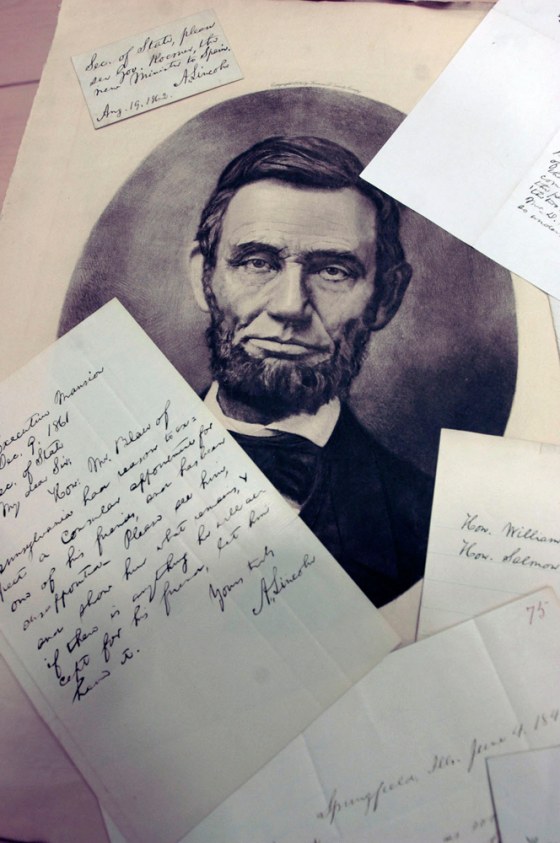 Sec. of State, please
see Gov. Koerner, the
new Minister to Spain.
A. Lincoln
Aug. 19, 1862.
Executive Mansion
Dec. 9, 1861
Sec. of State
My dear Sir:
Hon. Mr. Blair of
Pennsylvania had reason to ex=
pect a consular appointment for
one of his friends, and has been
disappointed. Please see him,
and show him what remains, &
if there is anything he will ac
cept for his friend, let him
have it.
Yours truly
A. Lincoln
Hon. William
Hon. Salmon
75
Springfield, Ills. June 4. 18